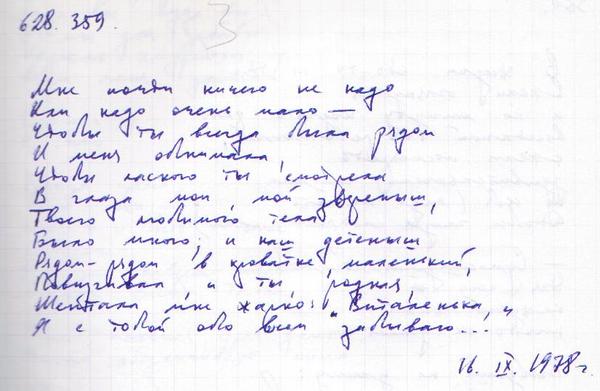 628. 359.
3
Мне почти ничего не надо
Или надо очень мало —
Чтобы ты всегда была рядом
И меня обнимала,
Чтобы ласково ты смотрела
В глаза мои, мой зверёныш,
Твоего любимого тела
Было много; и наш детёныш
Рядом-рядом в кроватке, маленький,
Повизгивал, и ты, родная,
Шептала мне жарко: "Виталенька,"
Я с тобой обо всём забываю...
16. IX. 1978 г.